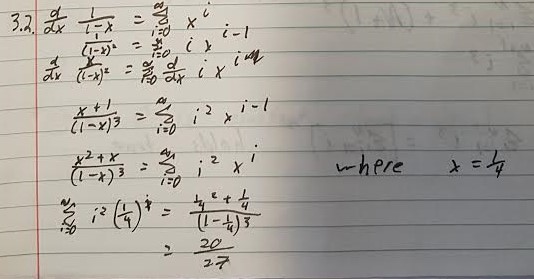 3.2. d/dx 1/(1-x) = ∞Σi=0 x^i
1/(1-x)² = ∞Σi=0 i x^(i-1)
d/dx x/(1-x)² = ∞Σi=0 d/dx i x^i
(x+1)/(1-x)³ = ∞Σi=0 i² x^(i-1)
(x²+x)/(1-x)³ = ∞Σi=0 i² x^i where x = 1/4
∞Σi=0 i² (1/4)^i = (1/4² + 1/4)/(1-1/4)³
= 20/27